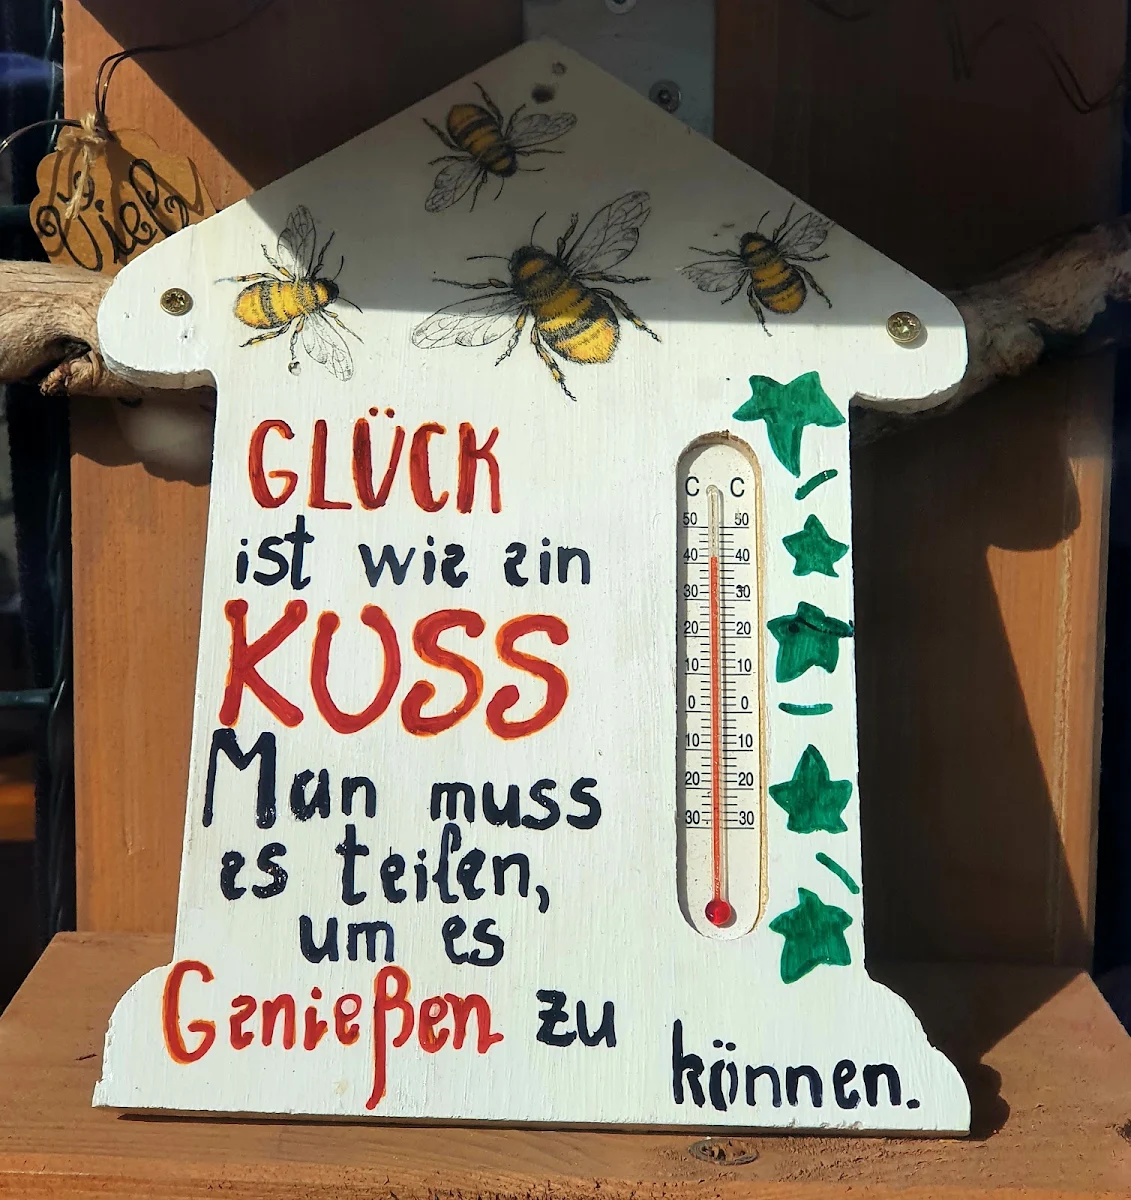 GLÜCK
ist wie ein
KUSS
Man muss
es teilen,
um es
Genießen zu
können.
C C
50 50
40 40
30 30
20 20
10 10
0 0
10 10
20 20
30 30